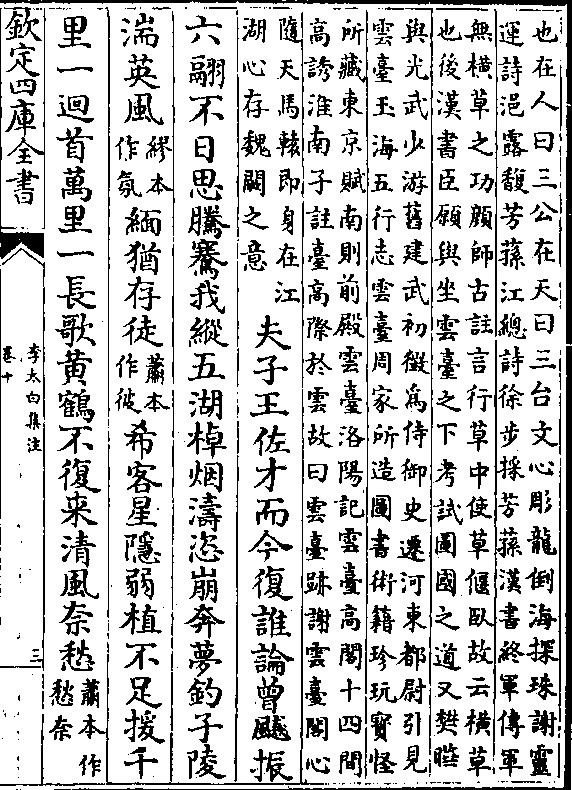 也在人曰三公在天曰三台文心彫龍倒海探珠謝靈
運詩浥露馥芳蓀江總詩徐步採芳蓀漢書終軍傳軍
無橫草之功顔師古註言行草中使草偃卧故云橫草
也後漢書臣願與坐雲臺之下考試圖國之道又樊曄
與光武少游舊建武初徵爲侍御史遷河東都尉引見
雲臺玉海五行志雲臺周家所造圖書術籍珍玩寳怪
所藏東京賦南則前殿雲臺洛陽記雲臺高閣十四間
高誘淮南子註臺高際於雲故曰雲臺跡謝雲臺閣心
隨天馬轅即身在江
湖心存魏闕之意
夫子王佐才而今復誰論曾飈振
六翮不日思騰騫我縱五湖棹烟濤恣崩奔夢釣子陵
湍英風
繆本
作氛
緬猶存徒
蕭本
作彼
希客星隱弱植不足援千
里一迴首萬里一長歌黄鶴不復来清風奈愁
蕭本作
愁奈
欽定四庫全書
李太白集注
卷十
三